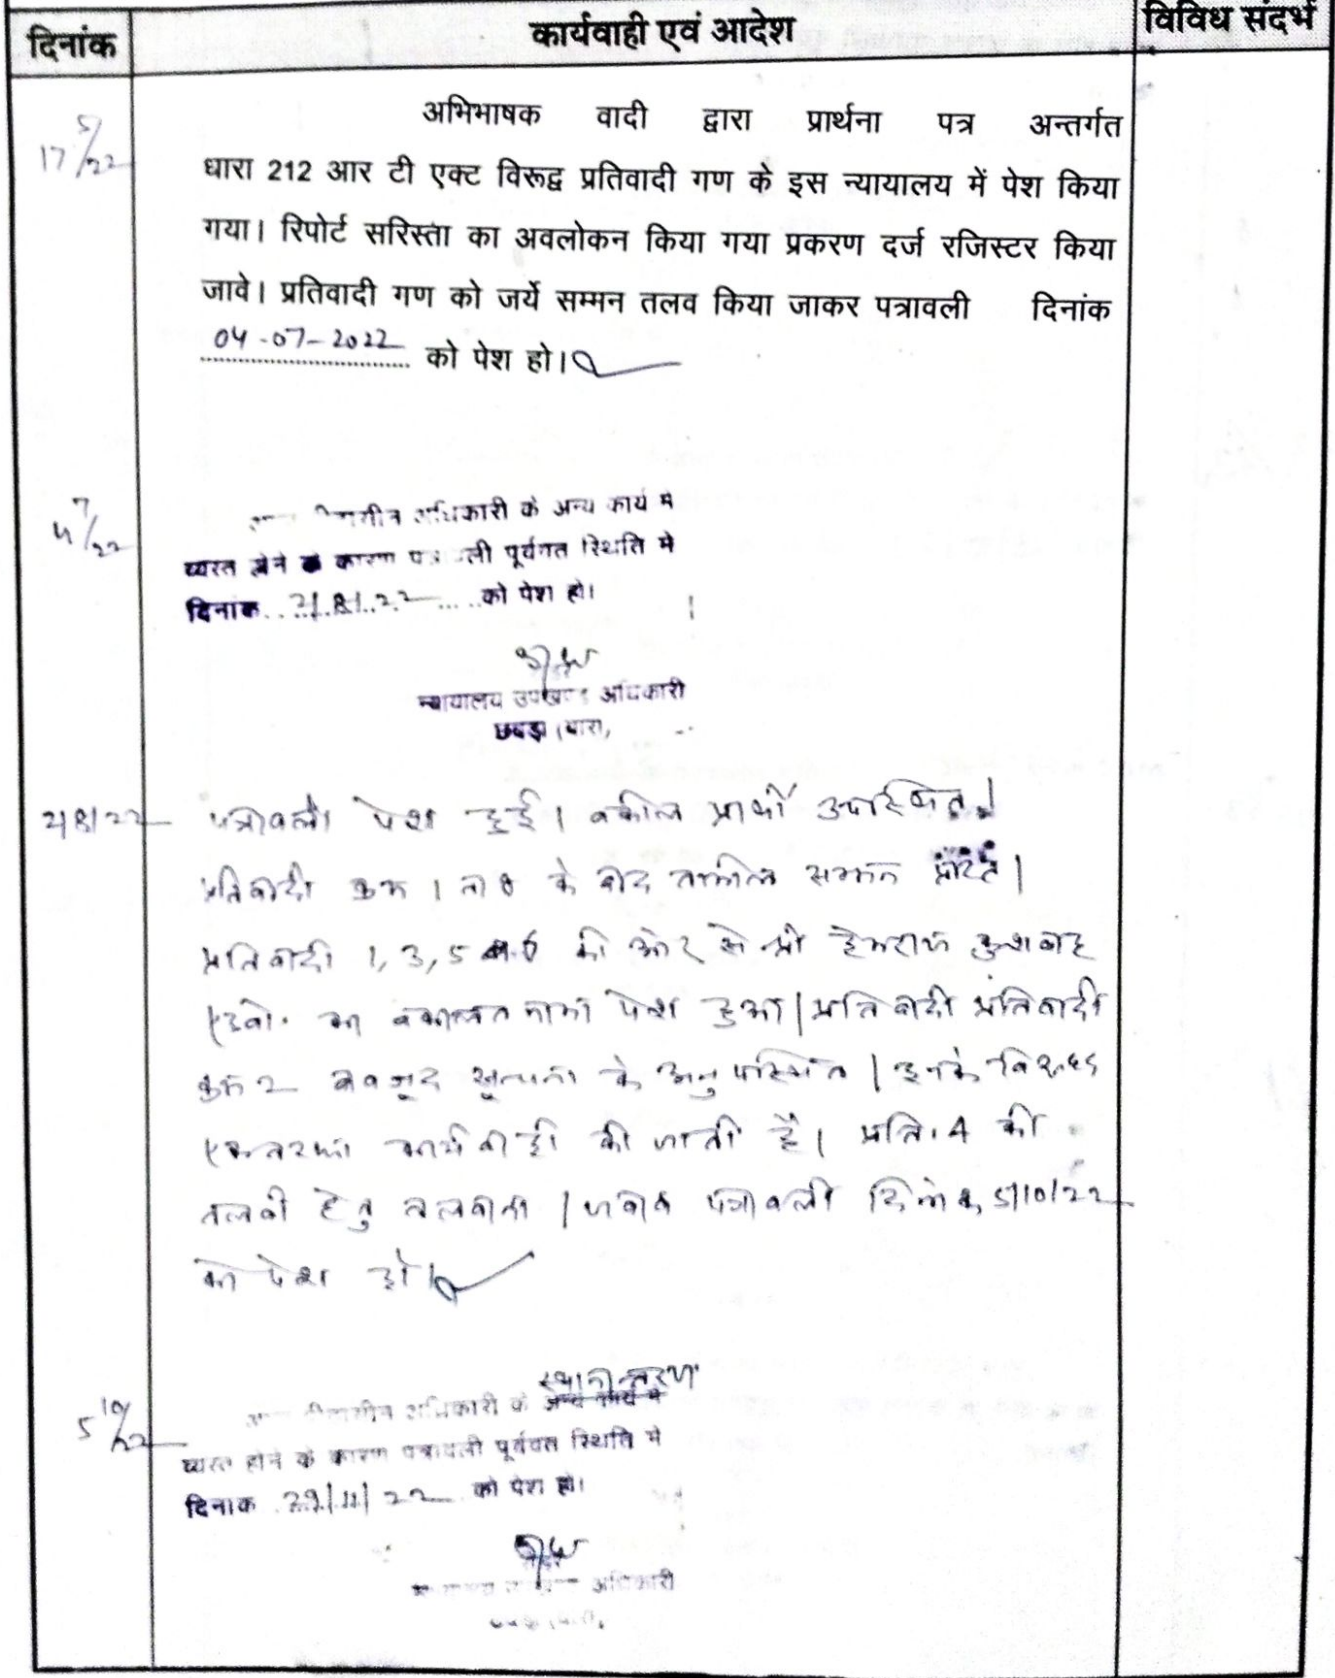 दिनांक
कार्यवाही एवं आदेश
विविध संदर्भ
17/5/22
अभिभाषक वादी द्वारा प्रार्थना पत्र अन्तर्गत
धारा 212 आर टी एक्ट विरूद्व प्रतिवादी गण के इस न्यायालय में पेश किया
गया। रिपोर्ट सरिस्ता का अवलोकन किया गया प्रकरण दर्ज रजिस्टर किया
जावे। प्रतिवादी गण को जर्ये सम्मन तलव किया जाकर पत्रावली दिनांक
04-07-2022 को पेश हो।
4/7/22
अधिकारी के अन्य कार्य मे
व्यस्त होने के कारण पत्रावली पूर्ववत स्थिति मे
दिनांक 2/8/22 को पेश हो।
न्यायालय उपखण्ड अधिकारी
2/8/22
पत्रावली पेश हुई। वकील प्रार्थी उपस्थित।
प्रतिवादी क्रम 1 ता 6 के बाद तामील सम्मन प्राप्त।
प्रतिवादी 1, 3, 5 की ओर से श्री हेमराज कुशवाह
एडवो. का वकालतनामा पेश हुआ। प्रतिवादी प्रतिवादी
क्रम 2 बावजूद सूचना के अनुपस्थित। इनके विरूद्ध
एकतरफा कार्यवाही की जाती है। प्रति. 4 की
तलवी हेतु तलवाना। पत्रावली दिनांक 5/10/22
को पेश हो।
5/10/22
स्थानान्तरण
अधिकारी के अन्य कार्य मे
व्यस्त होने के कारण पत्रावली पूर्ववत स्थिति मे
दिनांक 29/11/22 को पेश हो।
अधिकारी